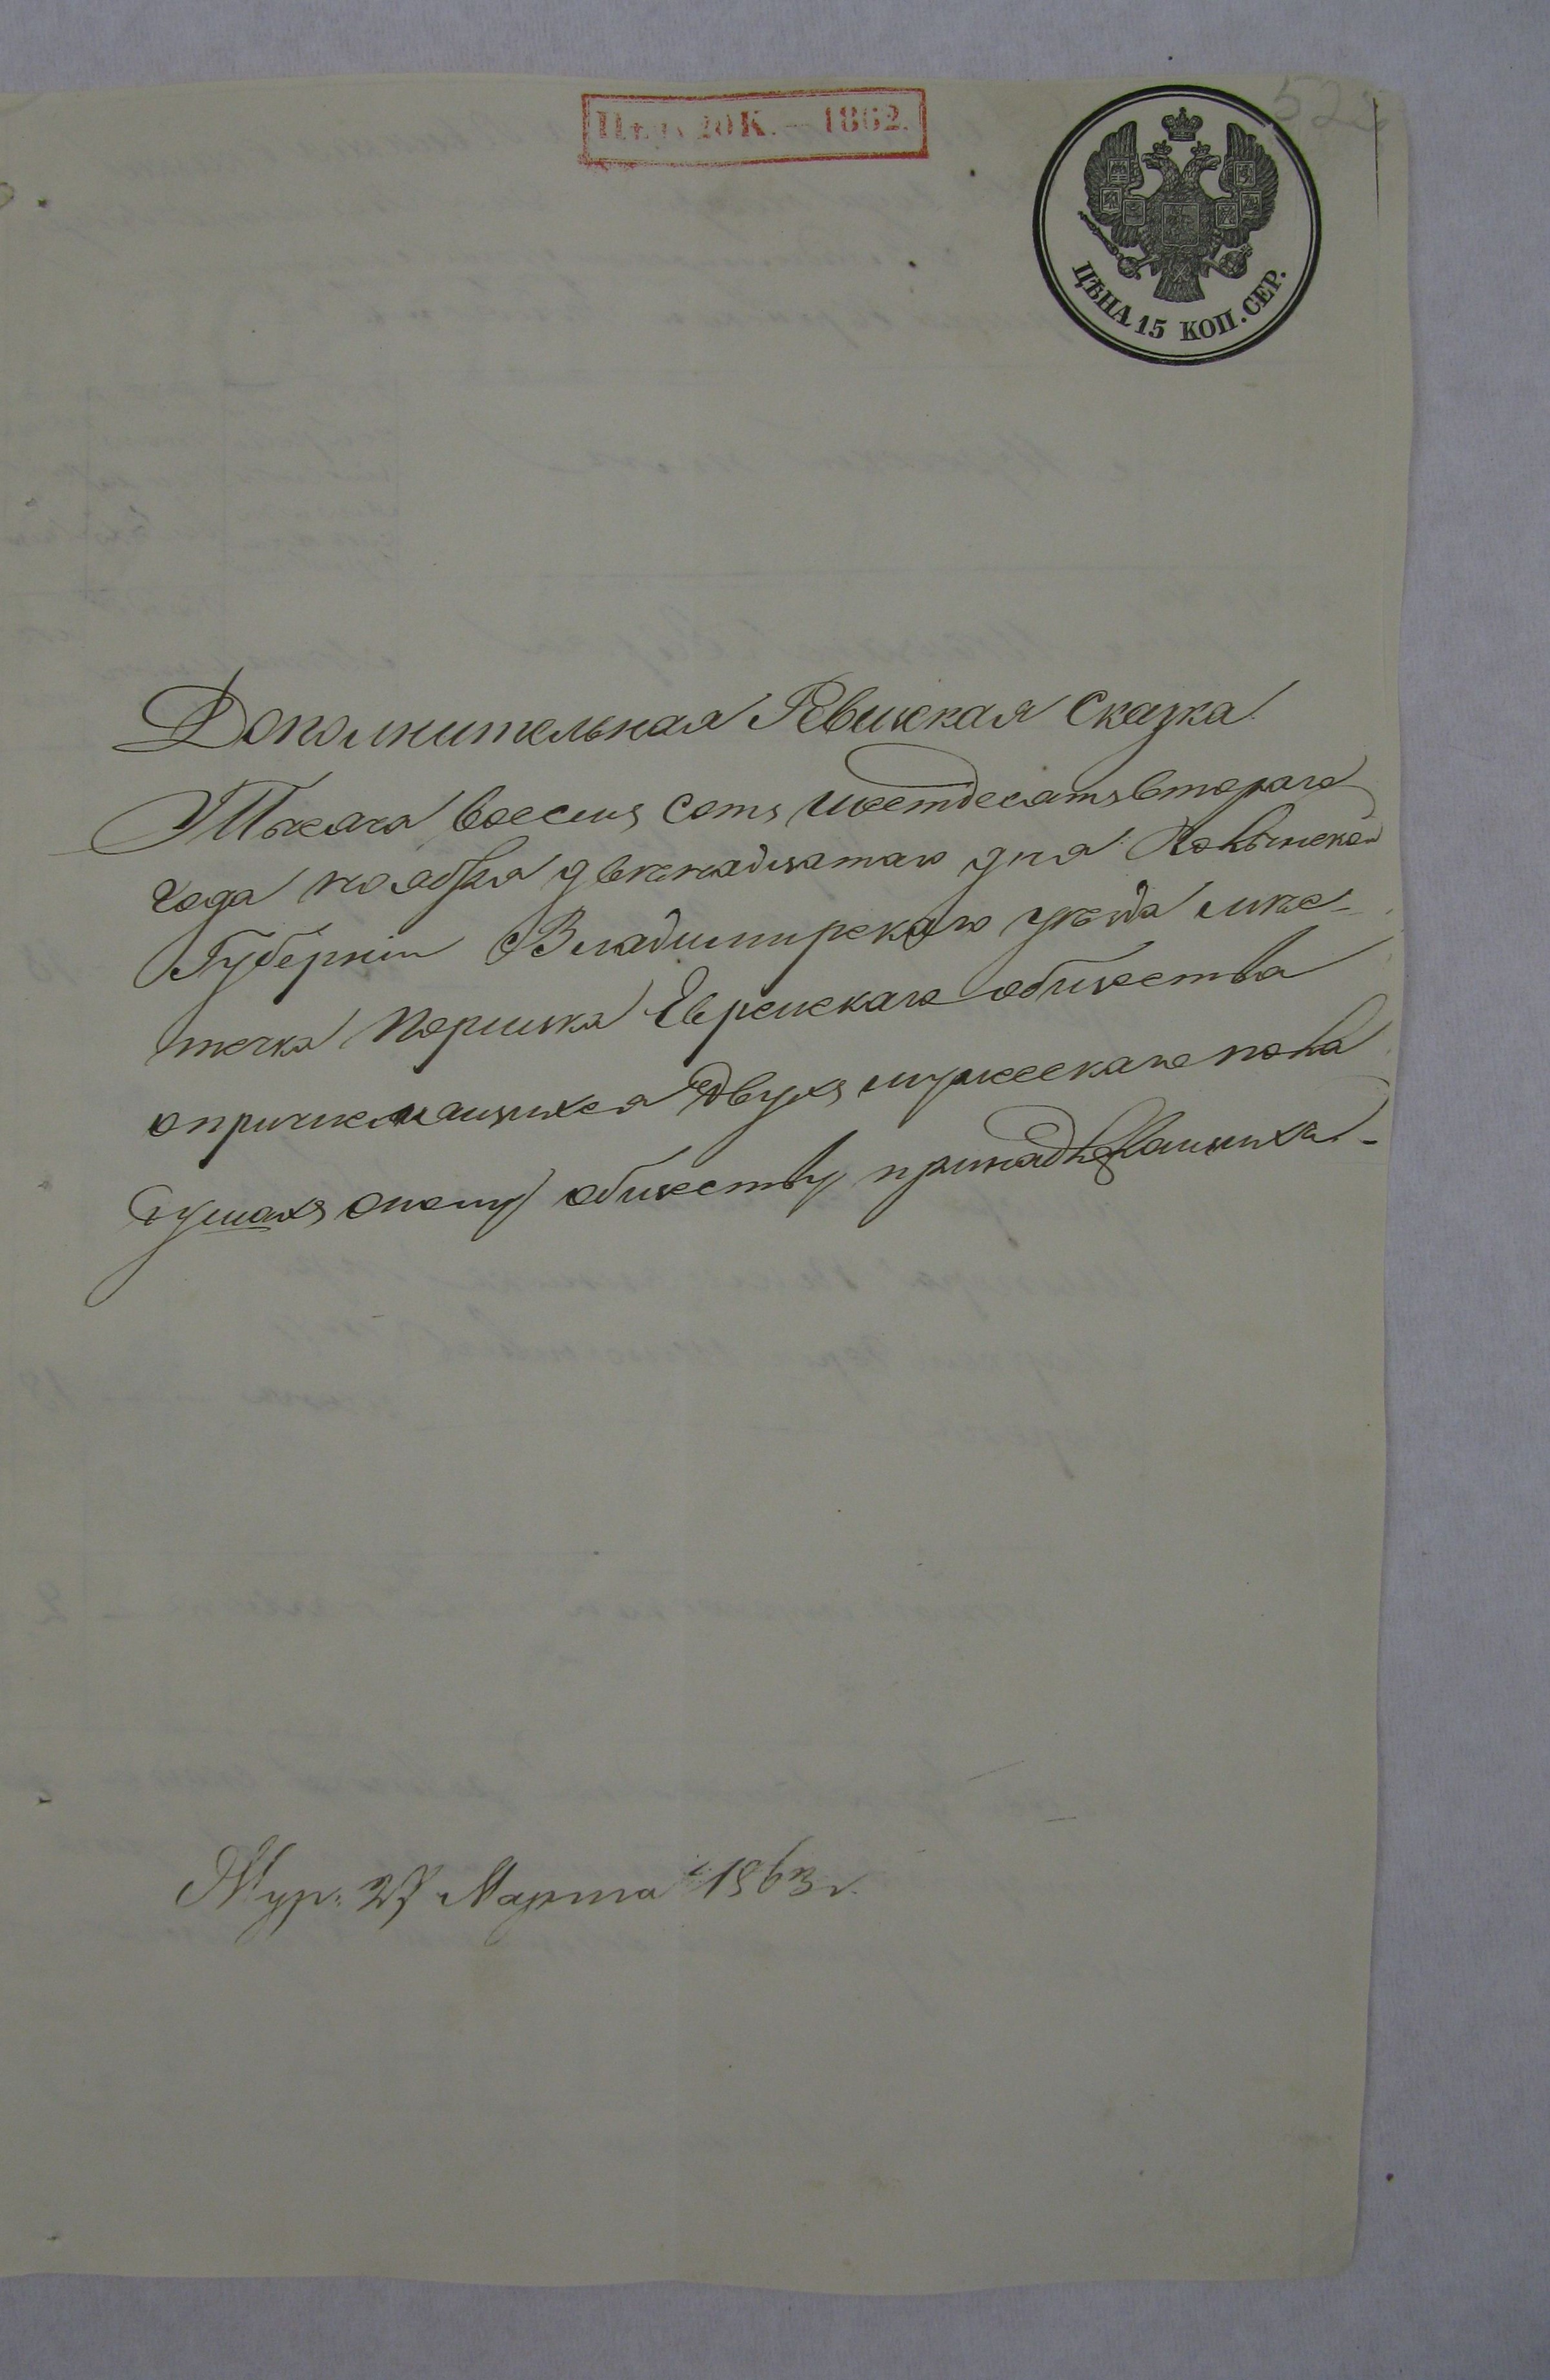 522
ЦѢНА 20 К. — 1862.
ЦѢНА 15 КОП. СЕР.
Дополнительная Ревизская Сказка
Тысяча восемь сотъ шестдесятъ втораго
года ноября двенадцатаго дня Волынской
Губерніи Владимирскаго уѣзда мѣс-
течка Порицка Еврейскаго общества
опричисляющихся двухъ мужескаго пола
душахъ оному обществу принадлежащихъ.
Жур. 27 Марта 1863 г.